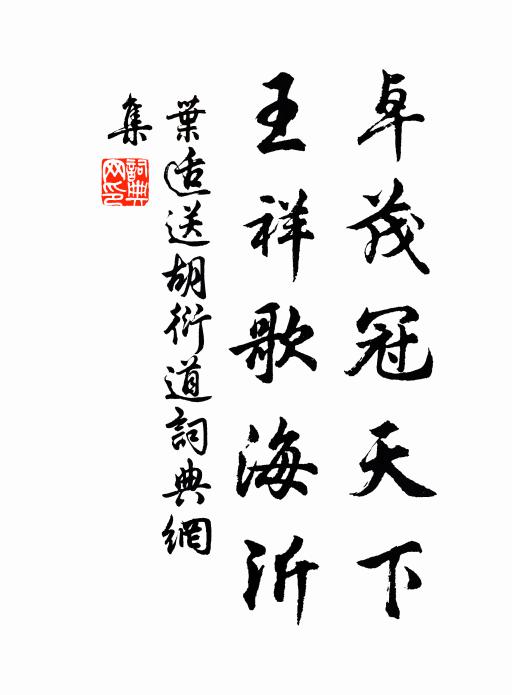 卓茂冠天下
王祥歌海沂
葉适送胡衍道詞典網
集
詞典網印